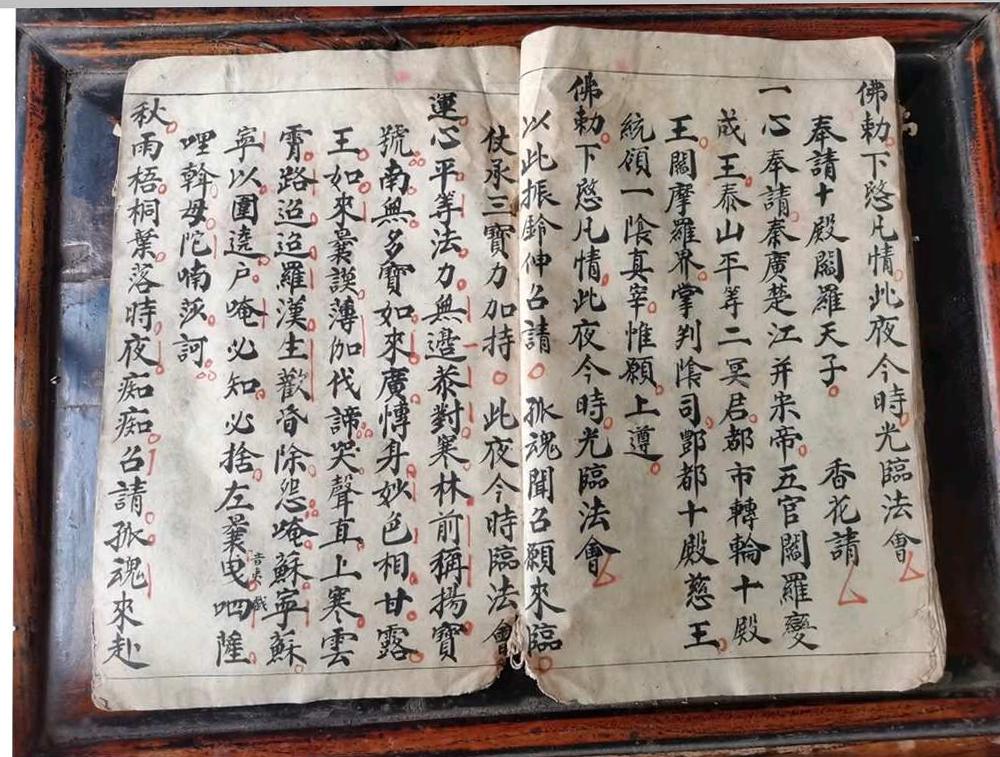 佛勅下愍凡情此夜今時光臨法會
奉請十殿閻羅天子 香花請
一心奉請秦廣楚江并宋帝五官閻羅變
成王泰山平等二冥君都市轉輪十殿
王閻摩羅界掌判陰司酆都十殿慈王
統領一陰真宰惟願上遵
佛勅下愍凡情此夜今時光臨法會
以此振鈴伸召請 孤魂聞召願來臨
仗承三寶力加持 此夜今時臨法會
運心平等法力無邉恭對寒林前稱揚寶
號南無多寳如來廣愽身妙色相甘露
王如來曩謨薄伽伐諦哭聲直上寒雲
霄路迢迢羅漢生歡昏除怨唵蘇寧蘇
寧以圍遶户唵必知必捨左曩曳呬薩
哩斡母陀喃莎訶
秋雨梧桐葉落時夜痴痴召請孤魂來赴